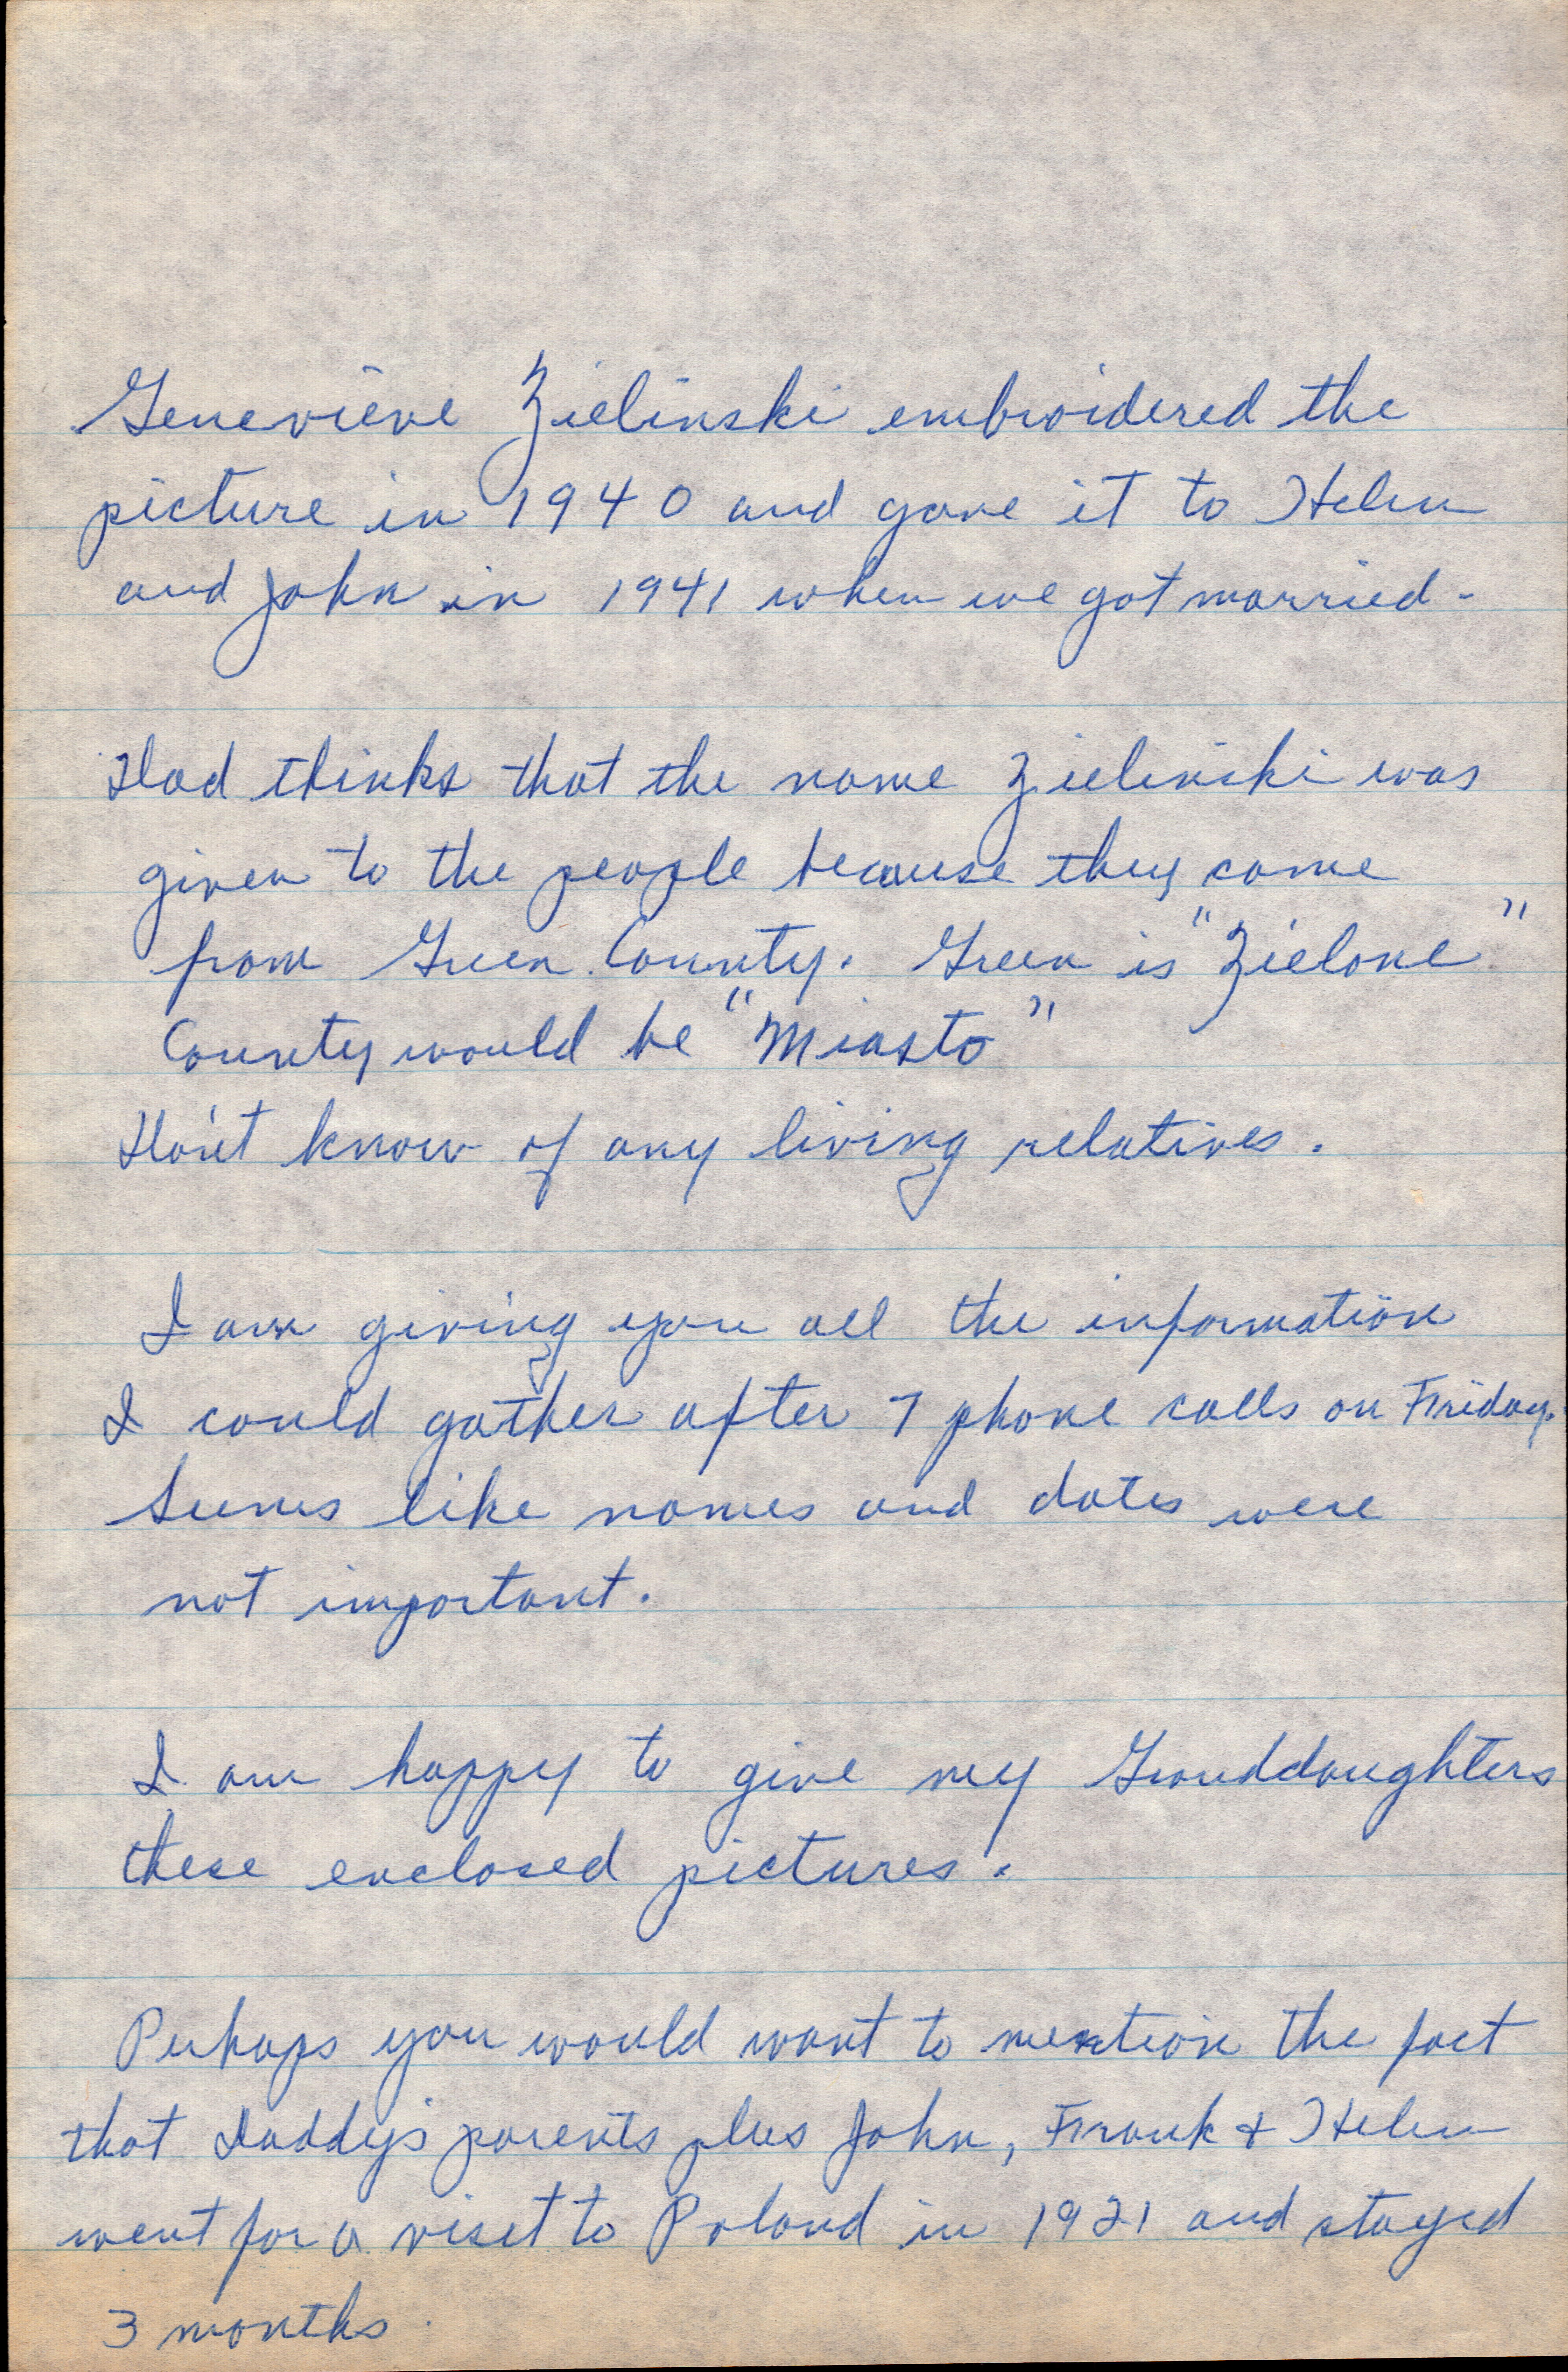 Genevieve Zielinski embroidered the
picture in 1940 and gave it to Helen
and John in 1941 when we got married -
Dad thinks that the name Zielinski was
given to the people because they came
from Green County. Green is "Zielone"
County would be "Miasto"
Don't know of any living relatives.
I am giving you all the information
I could gather after 7 phone calls on Friday.
Seems like names and dates were
not important.
I am happy to give my Granddaughters
these enclosed pictures.
Perhaps you would want to mention the fact
that Daddy's parents plus John, Frank & Helen
went for a visit to Poland in 1921 and stayed
3 months.